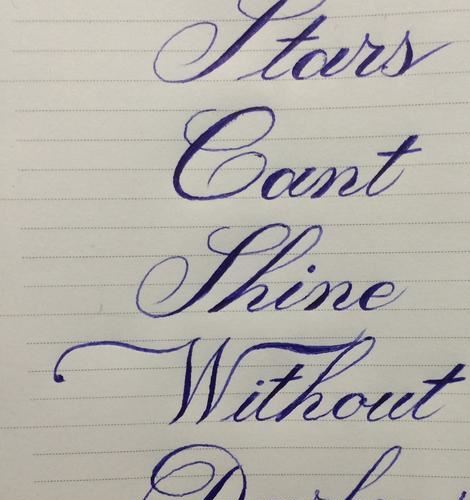 Stars
Cant
Shine
Without